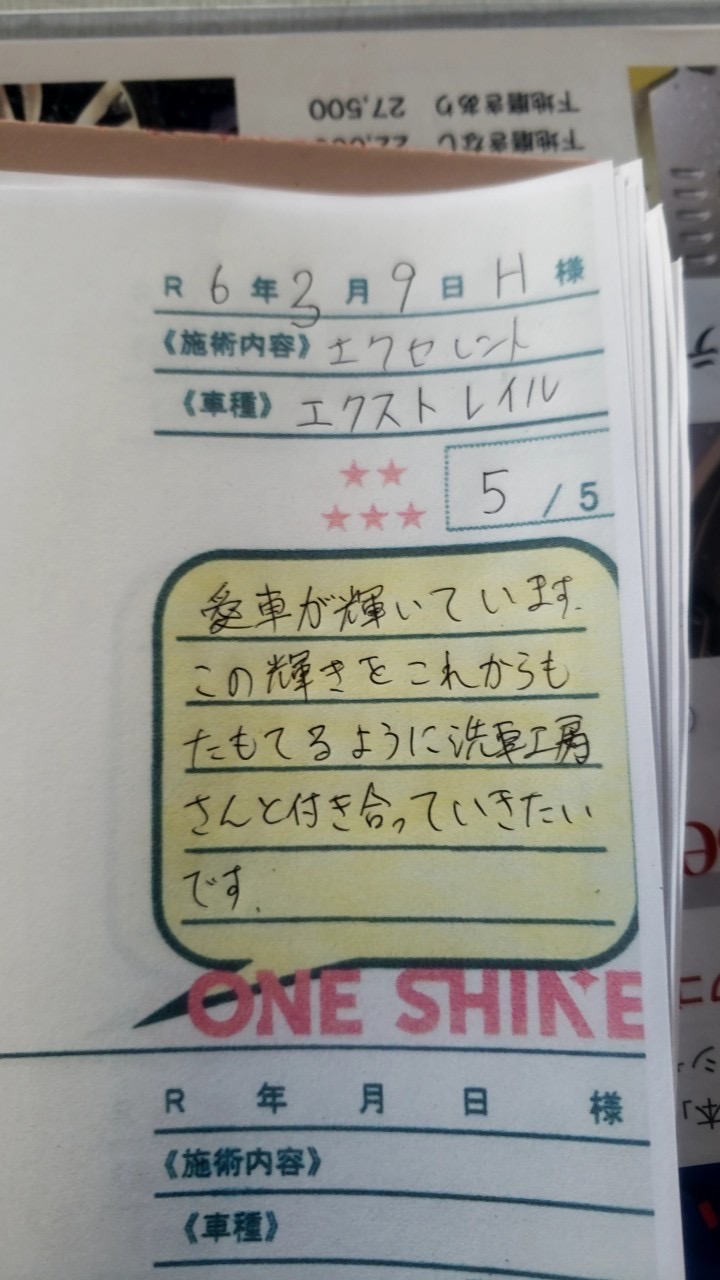 下地磨きあり 27,500
下地磨きなし
R 6 年 3 月 9 日 H 様
《施術内容》エクセレント
《車種》エクストレイル
5 / 5
愛車が輝いています.
この輝きをこれからも
たもてるように洗車工房
さんと付き合っていきたい
です.
ONE SHINE
R 年 月 日 様
《施術内容》
《車種》